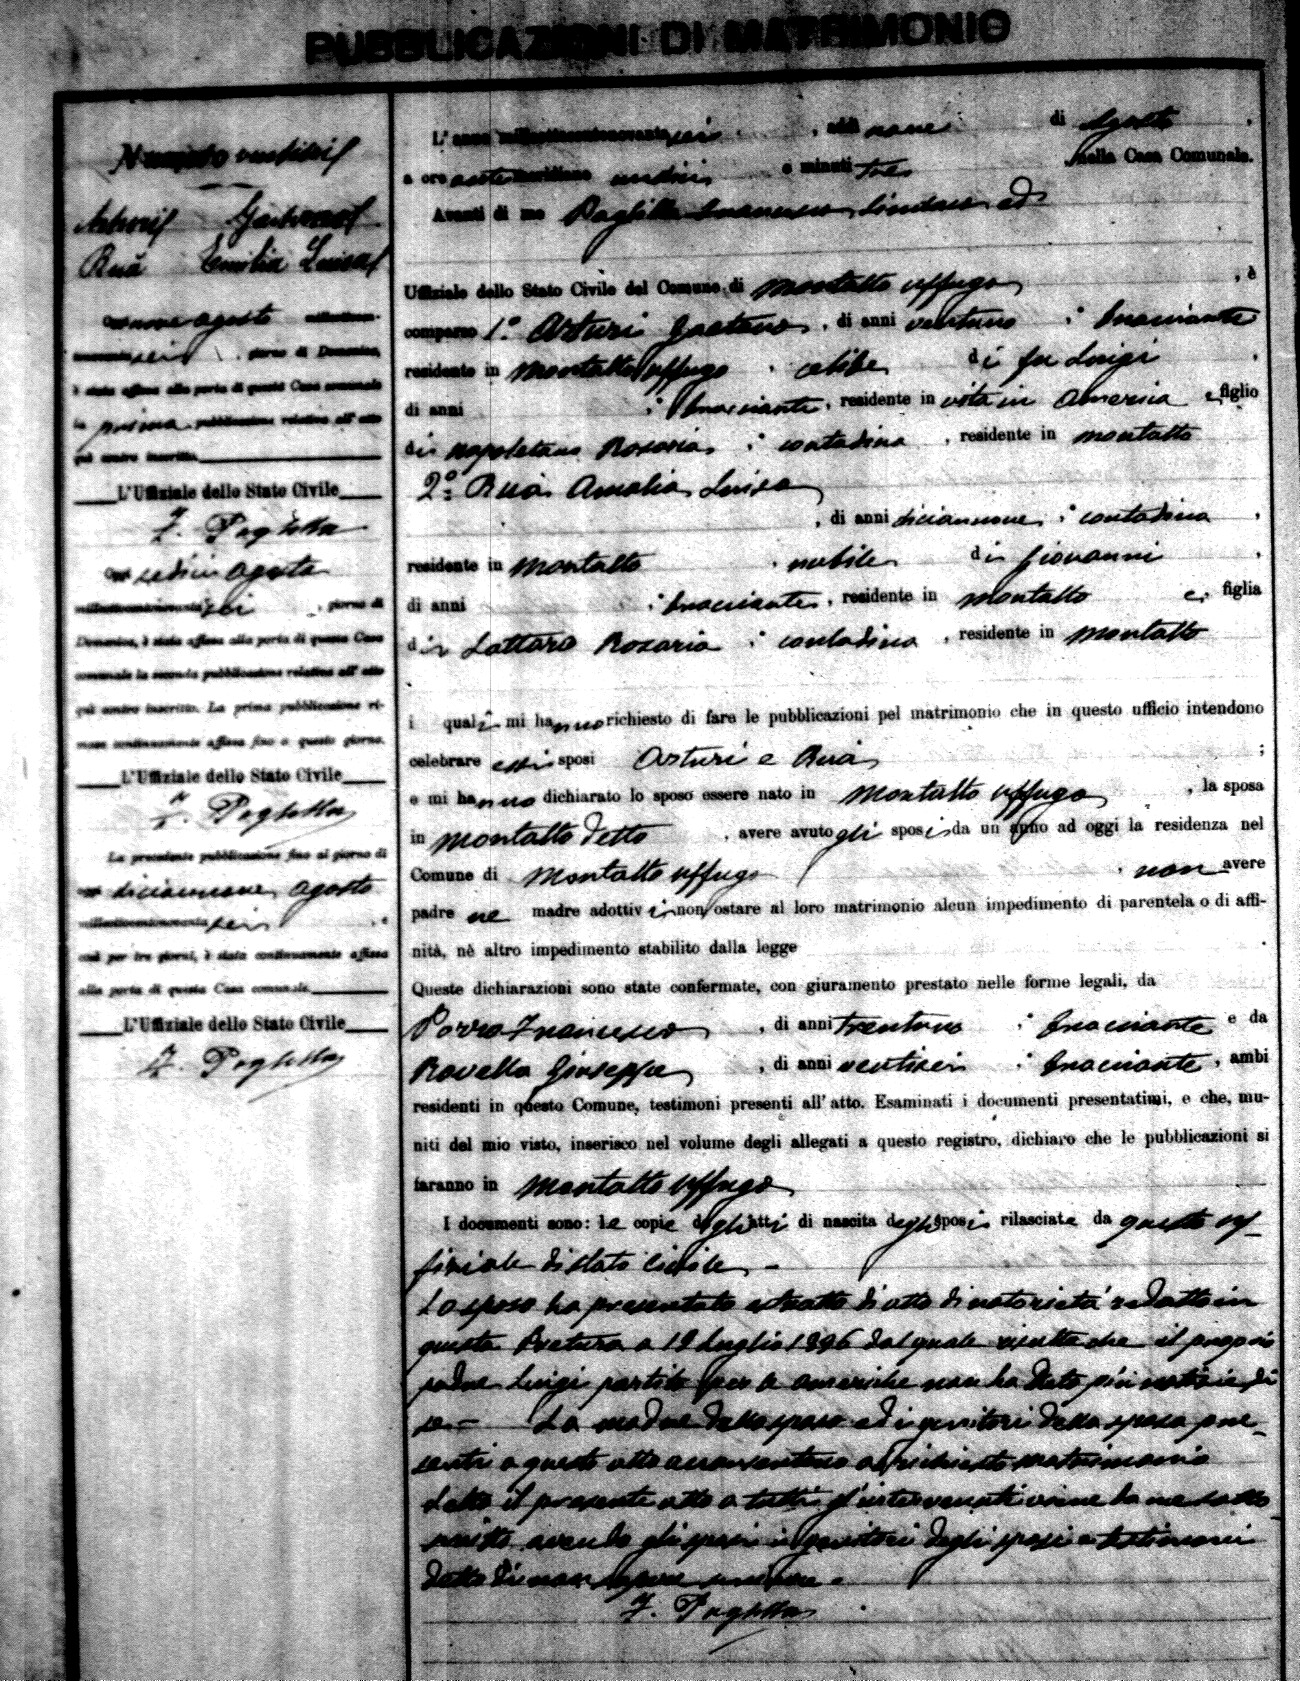 PUBBLICAZIONI DI MATRIMONIO
Numero ventisei
Arturi Gaetano
Ruà Emilia Luisa
Oggi nove agosto milleottocento-
novantasei, giorno di Domenica,
è stata affissa alla porta di questa Casa comunale
la prima pubblicazione relativa all' atto
qui contro inscritto
L'Uffiziale dello Stato Civile
F. Paglilla
Oggi sedici agosto
milleottocentonovantasei, giorno di
Domenica, è stata affissa alla porta di questa Casa
comunale la seconda pubblicazione relativa all' atto
qui contro inscritto. La prima pubblicazione ri-
mase continuamente affissa fino a questo giorno.
L'Uffiziale dello Stato Civile
F. Paglilla
La precedente pubblicazione fino al giorno di
oggi diciannove agosto
milleottocentonovantasei, e
così per tre giorni, è stata continuamente affissa
alla porta di questa Casa comunale
L'Uffiziale dello Stato Civile
F. Paglilla
L' anno milleottocentonovantasei, addì nove di Agosto,
a ore antemeridiane undici e minuti tre, nella Casa Comunale.
Avanti di me Paglilla Francesco Sindaco ed
Uffiziale dello Stato Civile del Comune di Montalto Uffugo, è
comparso 1.° Arturi Gaetano, di anni ventuno, bracciante
residente in Montalto Uffugo, celibe di fu Luigi,
di anni , bracciante, residente in vita in America e, figlio
di Napoletano Rosaria, contadina, residente in Montalto
2.° Ruà Amalia Luisa
, di anni diciannove, contadina,
residente in Montalto, nubile di Giovanni,
di anni , bracciante, residente in Montalto e, figlia
di Lattaro Rosaria, contadina, residente in Montalto
i quali mi hanno richiesto di fare le pubblicazioni pel matrimonio che in questo ufficio intendono
celebrare essi sposi Arturi e Ruà ;
e mi hanno dichiarato lo sposo essere nato in Montalto Uffugo, la sposa
in Montalto detto, avere avuto gli sposi da un anno ad oggi la residenza nel
Comune di Montalto Uffugo, non avere
padre ne madre adottivi, non ostare al loro matrimonio alcun impedimento di parentela o di affi-
nità, nè altro impedimento stabilito dalla legge.
Queste dichiarazioni sono state confermate, con giuramento prestato nelle forme legali, da
Porro Francesco, di anni trentuno, bracciante e da
Rovella Giuseppe, di anni ventisei, bracciante, ambi
residenti in questo Comune, testimoni presenti all' atto. Esaminati i documenti presentatimi, e che, mu-
niti del mio visto, inserisco nel volume degli allegati a questo registro, dichiaro che le pubblicazioni si
faranno in Montalto Uffugo
I documenti sono: Le copie degli atti di nascita degli sposi rilasciate da questo uf-
fiziale di stato civile.-
Lo sposo ha presentato estratto di atto di notorietà redatto in
questa Pretura a 12 Luglio 1896 dal quale risulta che il proprio
padre Luigi partito per le americhe non ha dato più notizie di
se.- La madre dello sposo ed i genitori della sposa pre-
senti a questo atto acconsentono al richiesto matrimonio
Letto il presente atto a tutti gl'intervenuti viene da me sotto
scritto avendo gli sposi i genitori degli sposi e testimoni
detto di non sapere scrivere.
F. Paglilla